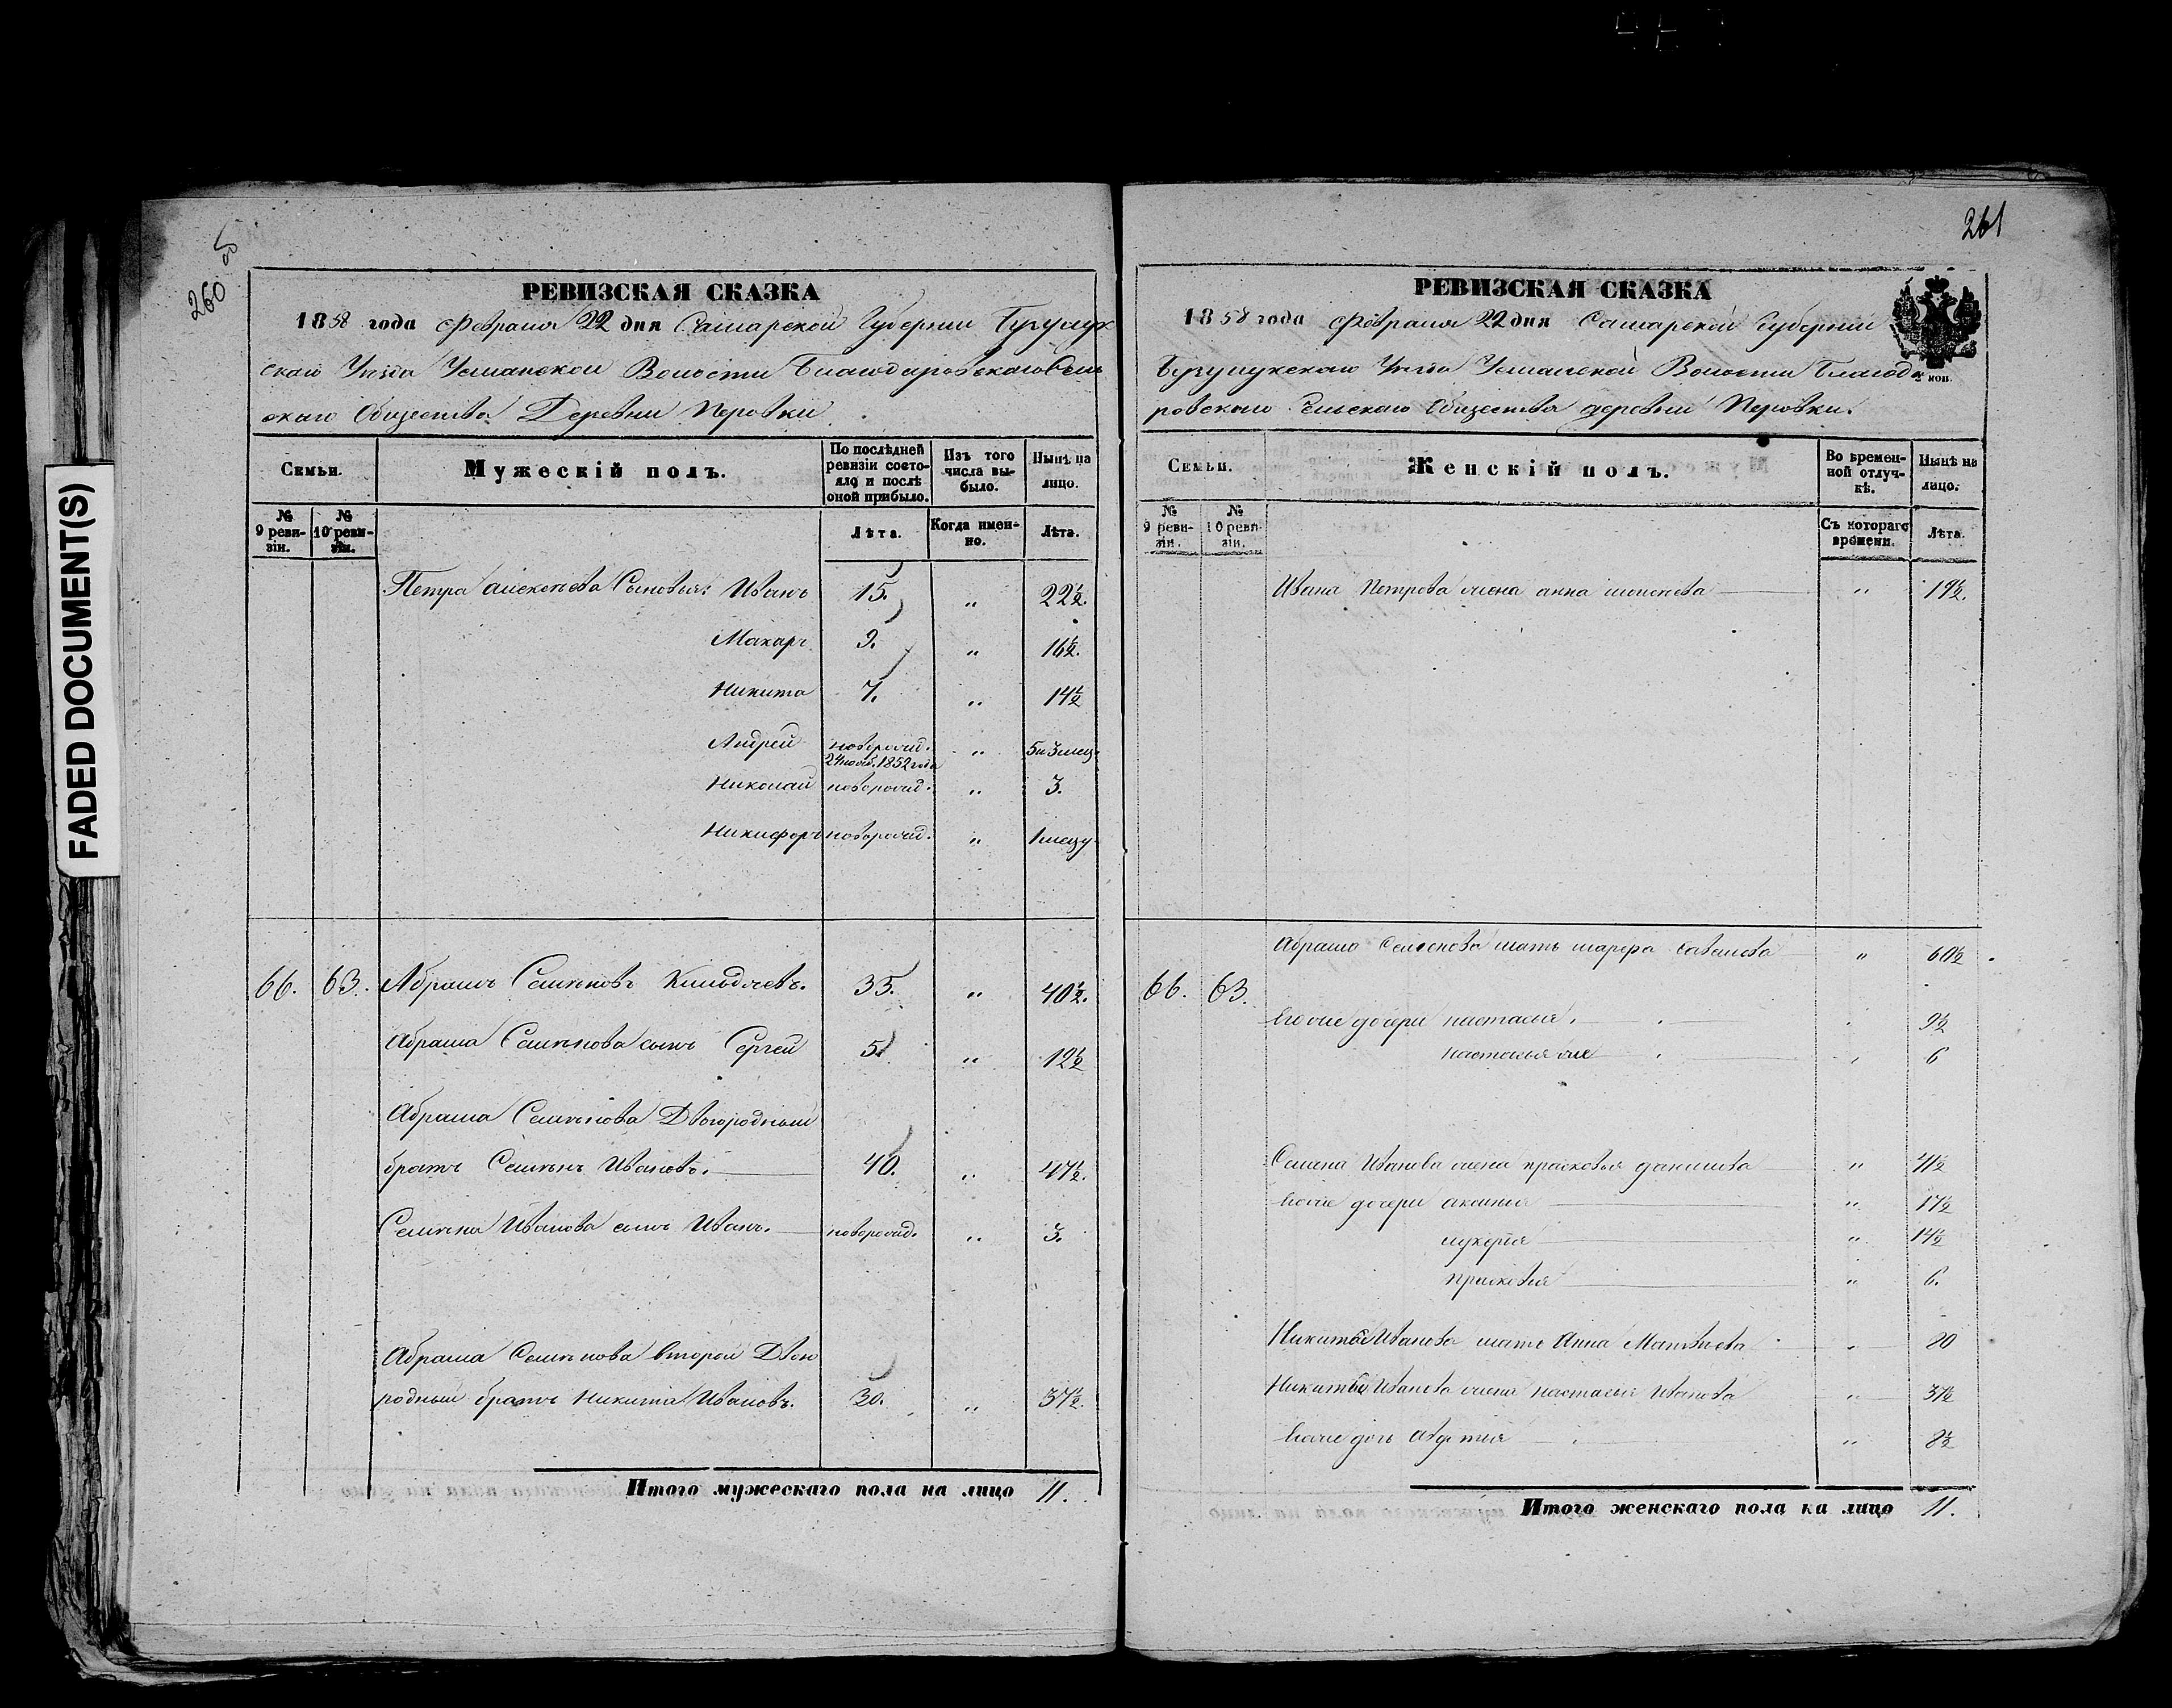 FADED DOCUMENT(S)
260
РЕВИЗСКАЯ СКАЗКА
1858 года Февраля 22 дня Самарской Губернии Бугурус
скаго Уѣзда Усманской Волости
скаго Общества Деревни Перовки
Семьи.
Мужескій полъ.
По послѣдней ревизіи состояло и послѣ оной прибыло.
Изъ того числа выбыло.
Нынѣ на лицо.
№ 9 ревизіи.
№ 10 ревизіи.
Лѣта.
Когда именно.
Лѣта.
Петра Алексѣева Сыновья: Иванъ 15. „ 22½.
Макаръ 9. „ 16½.
Никита 7. „ 14½
Андрей новорожд. „ 5 и 3 мец.
24 нояб. 1852 года
Николай новорожд. „ 3.
Никифоръ новорожд. „ 1 месц.
66. 63. Абрамъ Семѣновъ 35. „ 40½.
Абрама Семѣнова сынъ Сергей 5. „ 12½
Абрама Семѣнова Двоюродный
братъ Семѣнъ Ивановъ. 40. „ 47½.
Семѣна Иванова сынъ Иванъ. новорожд. „ 3.
Абрама Семѣнова второй Двою
родный братъ Никита Ивановъ. 30. „ 37½.
Итого мужескаго пола на лицо 11.
261
РЕВИЗСКАЯ СКАЗКА
1858 года Февраля 22 дня Самарской Губерніи
Уѣзда Усманской Волости Благода
ровскаго Сельскаго Общества деревни Перовки.
Семьи.
Женскій полъ.
Во временной отлучкѣ.
Нынѣ на лицо.
№ 9 ревизіи.
№ 10 ревизіи.
Съ котораго времени.
Лѣта.
Ивана Петрова жена анна „ 19½.
Абрама Семенова мать марфа савельева „ 60½
66. 63.
Егоже дочери настасья. 9½
настасья же 6
Семена Иванова жена прасковья данилова „ 41½
Егоже дочери аксинья „ 17½
лукерья „ 14½
прасковья „ 6.
Никиты Иванова мать Анна Матвѣева „ 80
Никиты Иванова жена настасья Иванова „ 37½
Егоже дочь „ 8½
Итого женскаго пола на лицо 11.